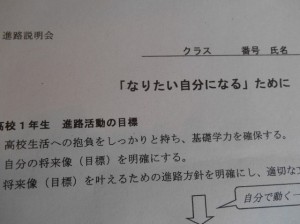 進路説明会
クラス 番号 氏名
「なりたい自分になる」ために
高校1年生 進路活動の目標
高校生活への抱負をしっかりと持ち、基礎学力を確保する。
自分の将来像（目標）を明確にする。
将来像（目標）を叶えるための進路方針を明確にし、適切な
自分で動く